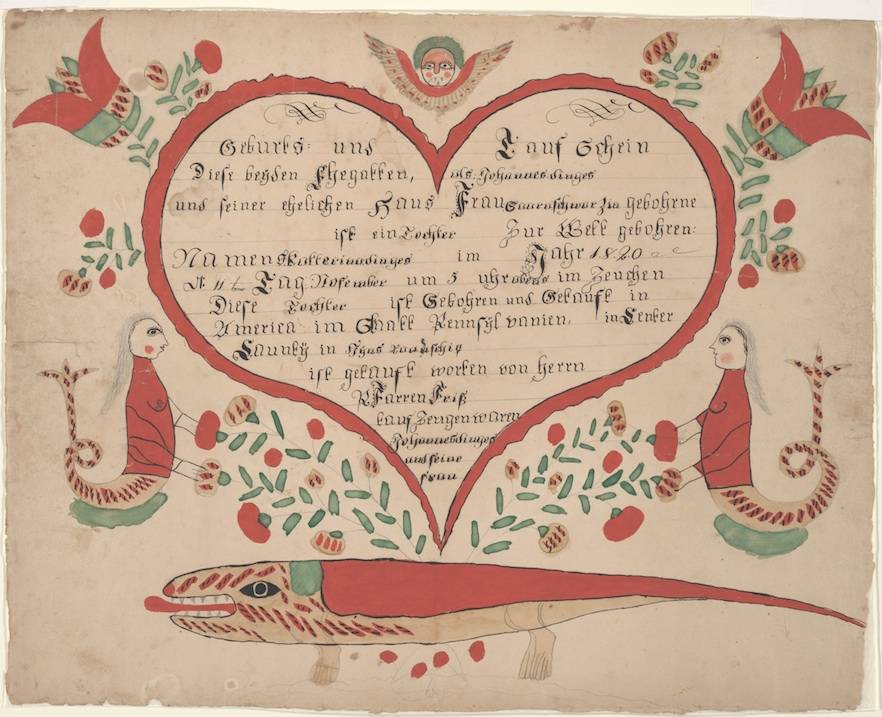 Geburts= und Tauf Schein
Diese beyden Ehegatten, als Johannes dinges
und seiner ehelichen Haus Frau gebohrne
ist ein Tochter Zur Welt gebohren:
Namens Katterina dinges im Jahr 1820
Tag Nofember um 5 uhr abens im Zeuchen
Diese Tochter ist Gebohren und Getauft in
America im Staat Pennsylvanien, in Center
Caunty in
ist getauft worten von Herrn
Pfarren Friß
tauf Zeugen waren
Johannes dinges
und seine
frau